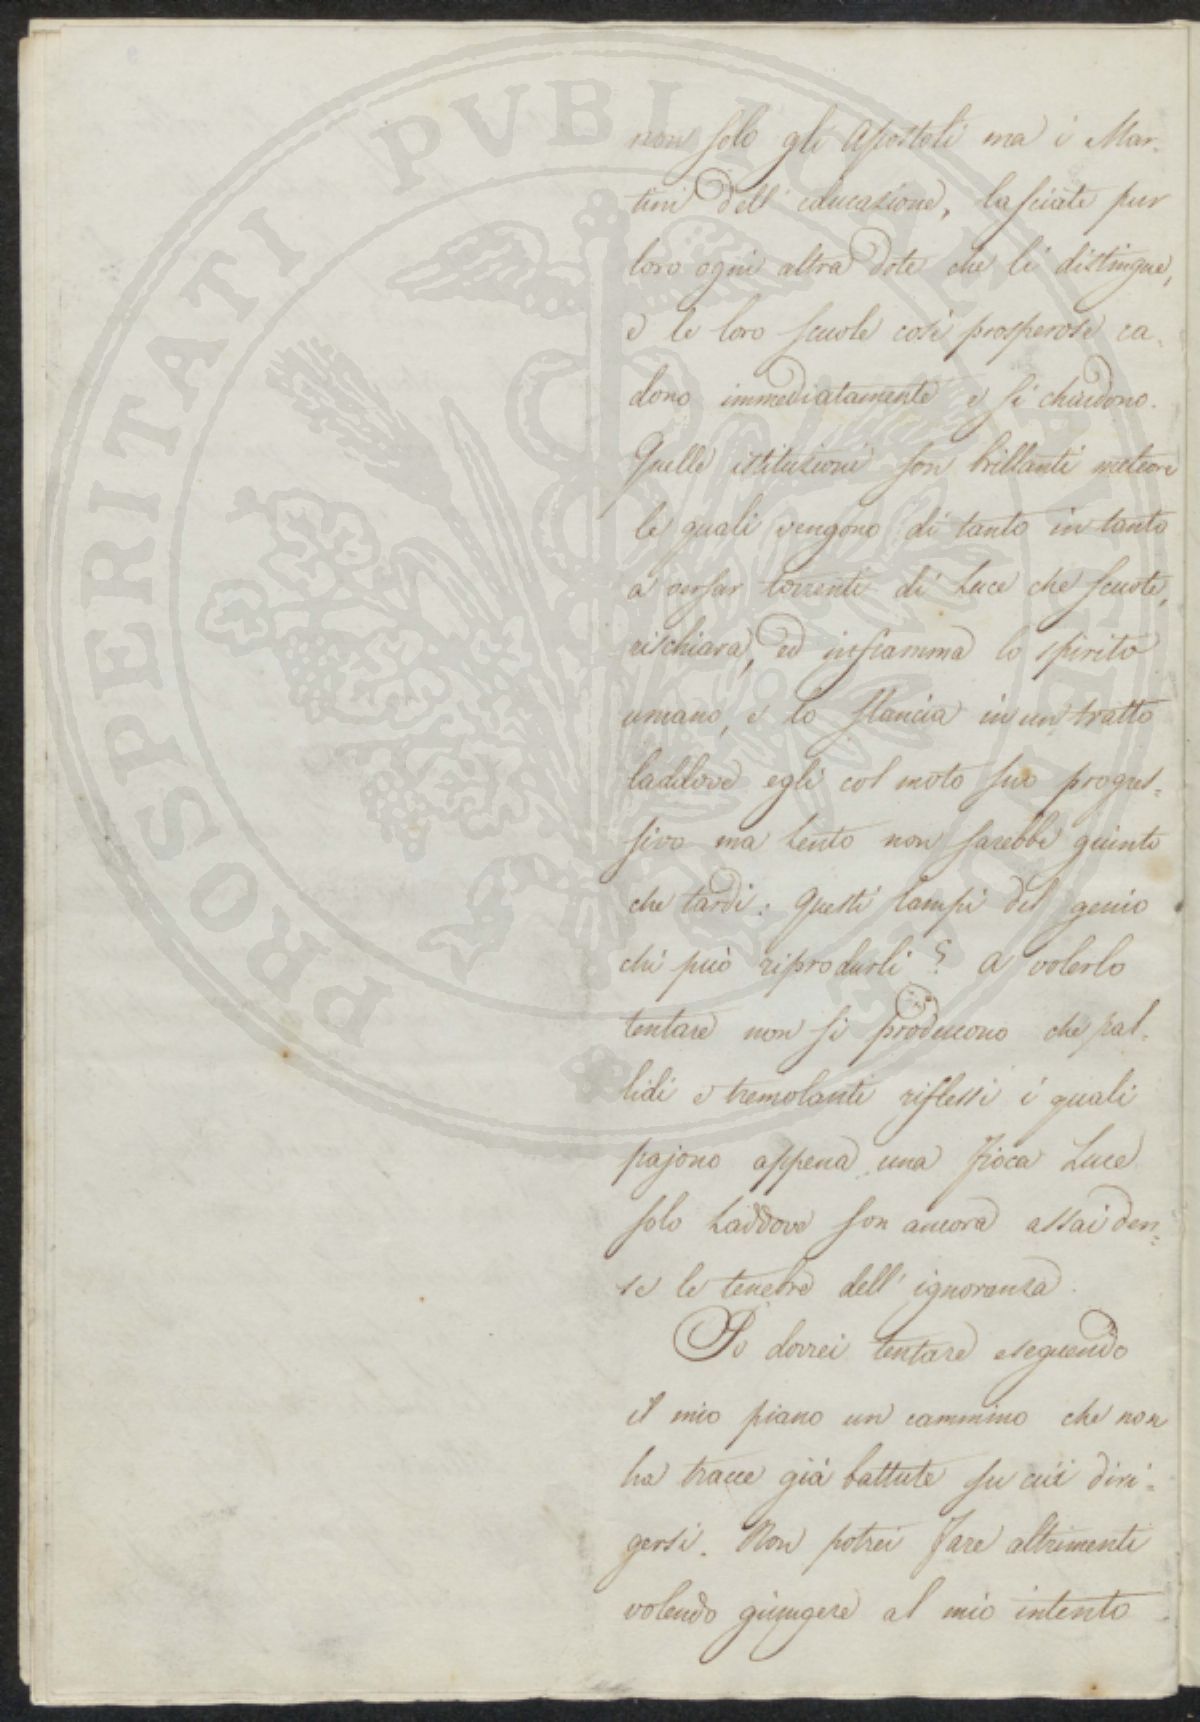 PROSPERITATI PVBLICAE
non solo gli Apostoli ma i Mar-
tiri dell' educazione, lasciate pur
loro ogni altra dote che li distingue,
e le loro scuole così prosperose ca-
dono immediatamente e si chiudono.
Quelle istituzioni son brillanti meteore
le quali vengono di tanto in tanto
a versar torrenti di Luce che scuote,
rischiara, ed infiamma lo spirito
umano, e lo slancia in un tratto
laddove egli col moto suo progres-
sivo ma lento non sarebbe giunto
che tardi: Questi lampi del genio
chi può riprodurli? A volerlo
tentare non si producono che pal-
lidi e tremolanti riflessi i quali
pajono appena una fioca Luce
solo Laddove son ancora assai den-
se le tenebre dell' ignoranza.
Io dovrei tentare eseguendo
il mio piano un cammino che non
ha tracce già battute su cui diri-
gersi. Non potrei fare altrimenti
volendo giungere al mio intento